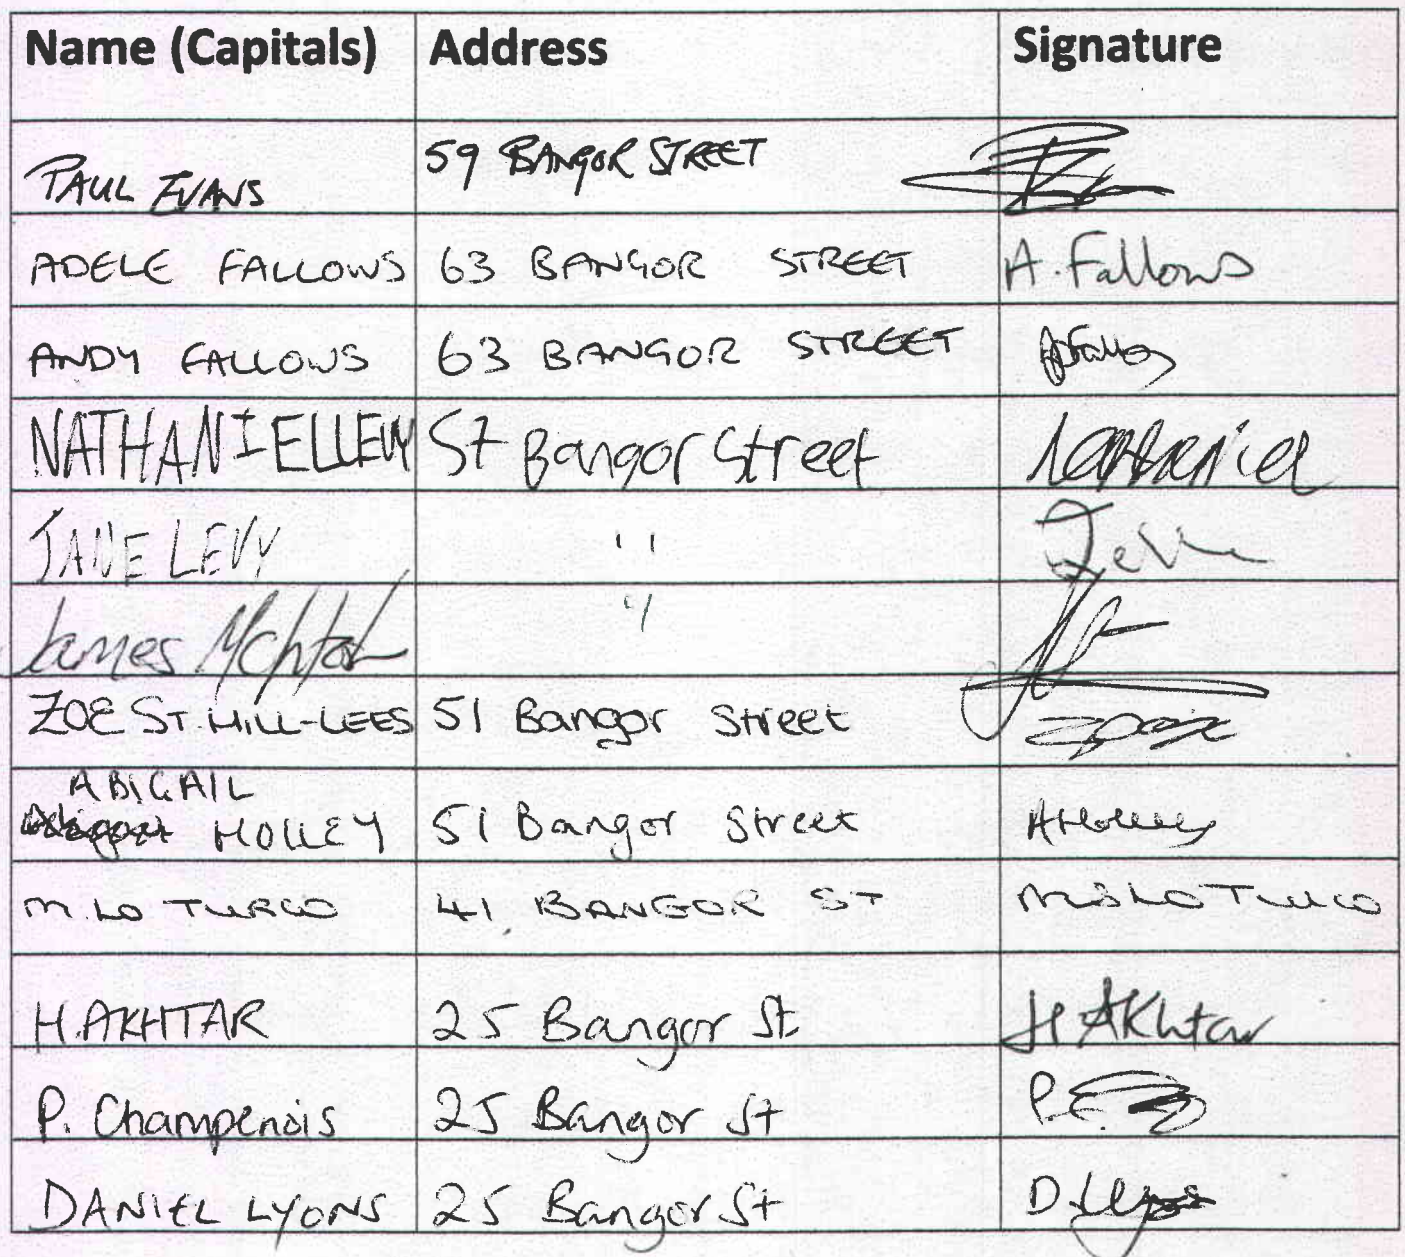 Name (Capitals) Address Signature
PAUL EVANS 59 BANGOR STREET
ADELE FALLOWS 63 BANGOR STREET A. Fallows
ANDY FALLOWS 63 BANGOR STREET AFallows
NATHANIEL LEVY 57 Bangor Street Nathaniel
JANE LEVY " JLevy
James "
ZOE ST.HILL-LEES 51 Bangor Street
ABIGAIL
HOLLEY 51 Bangor Street AHolley
M. LO TURCO 41 BANGOR ST M LO TURCO
H. AKHTAR 25 Bangor St. H AKhtar
P. Champenois 25 Bangor St
DANIEL LYONS 25 Bangor St D. Lyons